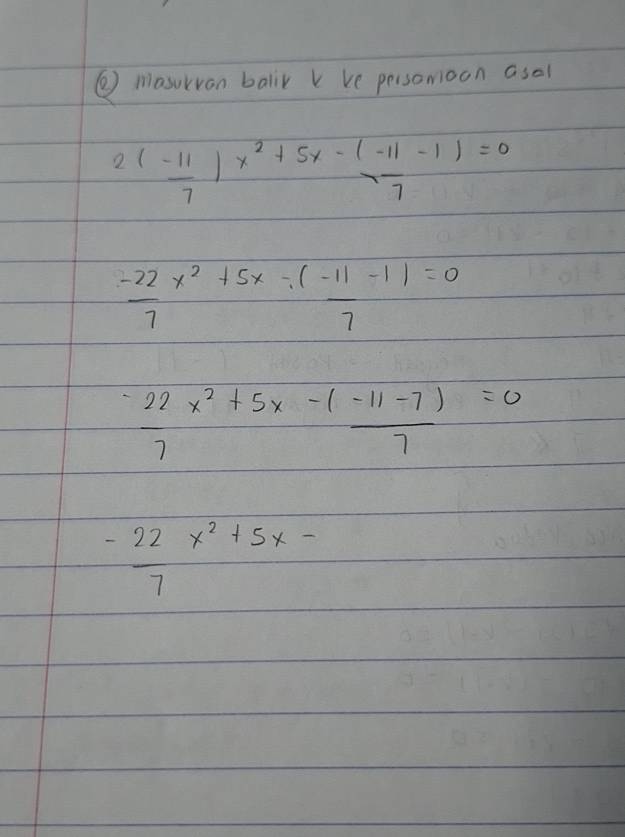 ② masukkan balik k ke persamaan asal
2 ( -11/7 ) x² + 5x - ( -11/7 - 1 ) = 0
-22/7 x² + 5x - ( -11/7 - 1 ) = 0
- 22/7 x² + 5x - ( (-11 - 7)/7 ) = 0
- 22/7 x² + 5x -